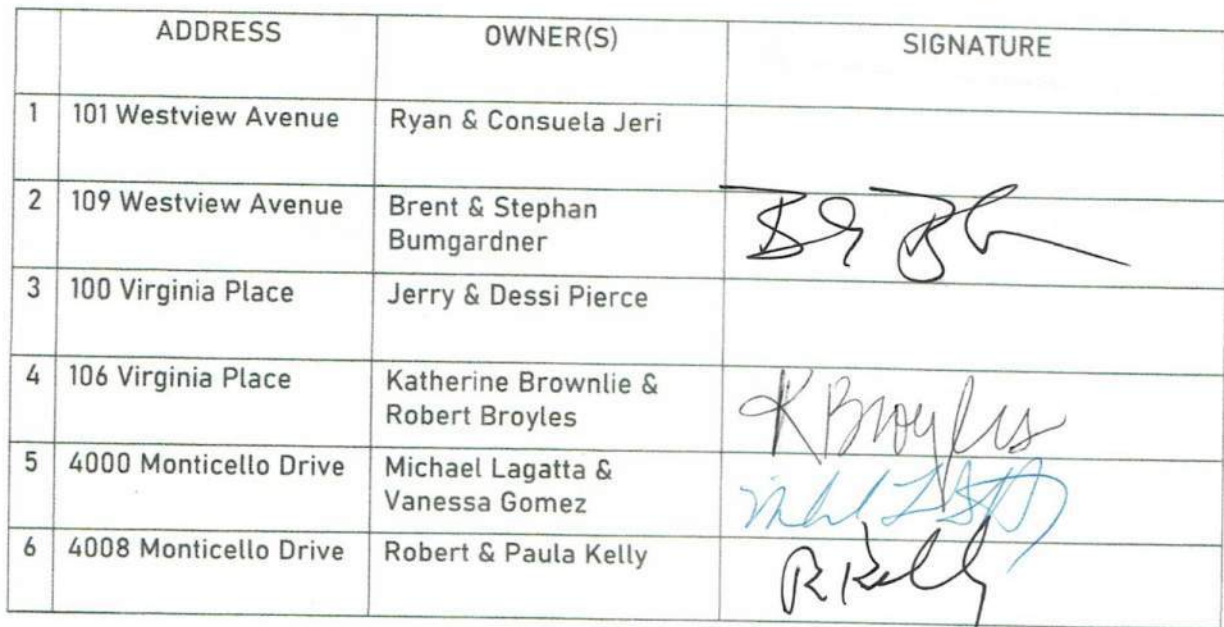 ADDRESS OWNER(S) SIGNATURE
1 101 Westview Avenue Ryan & Consuela Jeri
2 109 Westview Avenue Brent & Stephan
Bumgardner
3 100 Virginia Place Jerry & Dessi Pierce
4 106 Virginia Place Katherine Brownlie &
Robert Broyles K Broyles
5 4000 Monticello Drive Michael Lagatta &
Vanessa Gomez
6 4008 Monticello Drive Robert & Paula Kelly R Kelly